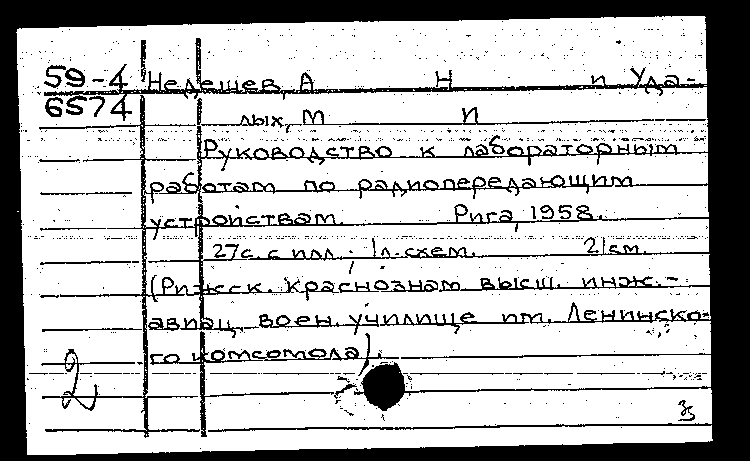 59-4 Недешев, А Н и Уда-
6574 лых, М П
Руководство к лабораторным
работам по радиопередающим
устройствам. Рига, 1958.
27с. с илл.; 1л. схем. 21см.
(Рижск. краснознам высш. инж.-
авиац. воен. училище им. Ленинско-
го комсомола).
2